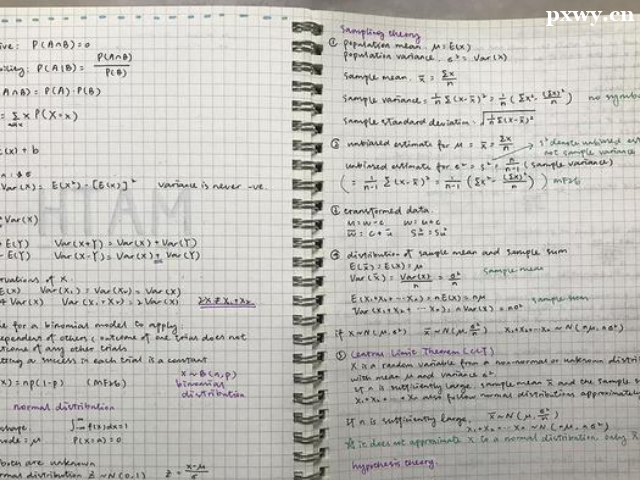 ive: P(A∩B)=0
bility: P(A|B) = P(A∩B) / P(B)
A∩B) = P(A)·P(B)
= Σ x P(X=x)
E(x) + b
Var(X) = E(X²) - [E(X)]² variance is never -ve.
Var(X)
+ E(Y) Var(X+Y) = Var(X) + Var(Y)
- E(Y) Var(X-Y) = Var(X) + Var(Y)
rvations of X.
E(X) Var(X₁) = Var(X₂) = Var(X)
Var(X) Var(X₁+X₂) = 2Var(X) 2X ≠ X₁+X₂
for a binomial model to apply
dependent of others (outcome of one trial does not
outcome of any other trials
etting a success in each trial is a constant
X~B(n,p)
x) = np(1-p) (MF26) binomial
distribution
normal distribution
shape. ∫ f(x)dx=1
mode = μ P(X=a) = 0
both are unknown
rmal distribution Z ~ N(0,1) Z = (X-μ)/σ
pxwy.cn
Sampling theory
① population mean. μ = E(X)
population variance. σ² = Var(X)
sample mean. x̄ = Σx/n
sample variance = 1/n Σ(x-x̄)² = 1/n (Σx² - (Σx)²/n) no symbo
sample standard deviation: √(1/n Σ(x-x̄)²)
② unbiased estimate for μ = x̄ = Σx/n
s² denote unbiased est
not sample variance
unbiased estimate for σ² = s² = n/(n-1) (sample variance)
( = 1/(n-1) Σ(x-x̄)² = 1/(n-1) (Σx² - (Σx)²/n) ) MF26
③ transformed data.
④ distribution of sample mean and sample sum
E(x̄) = E(X) = μ
Var(x̄) = Var(X)/n = σ²/n sample mean
E(X₁+X₂+···Xₙ) = nE(X) = nμ sample sum
Var(X₁+X₂+···Xₙ) = nVar(X) = nσ²
if X~N(μ,σ²) x̄~N(μ,σ²/n) X₁+X₂+···Xₙ ~ N(nμ, nσ²)
⑤ Central Limit Theorem (CLT)
X is a random variable from a non-normal or unknown distrib
with mean μ and variance σ².
If n is sufficiently large, sample mean x̄ and the sample s
X₁+X₂+···+Xₙ also follow normal distributions approximately
If n is sufficiently large, x̄~N(μ,σ²/n)
X₁+X₂+···Xₙ ~ N(nμ, nσ²)
it does not approximate X to a normal distribution, only X
hypothesis theory.